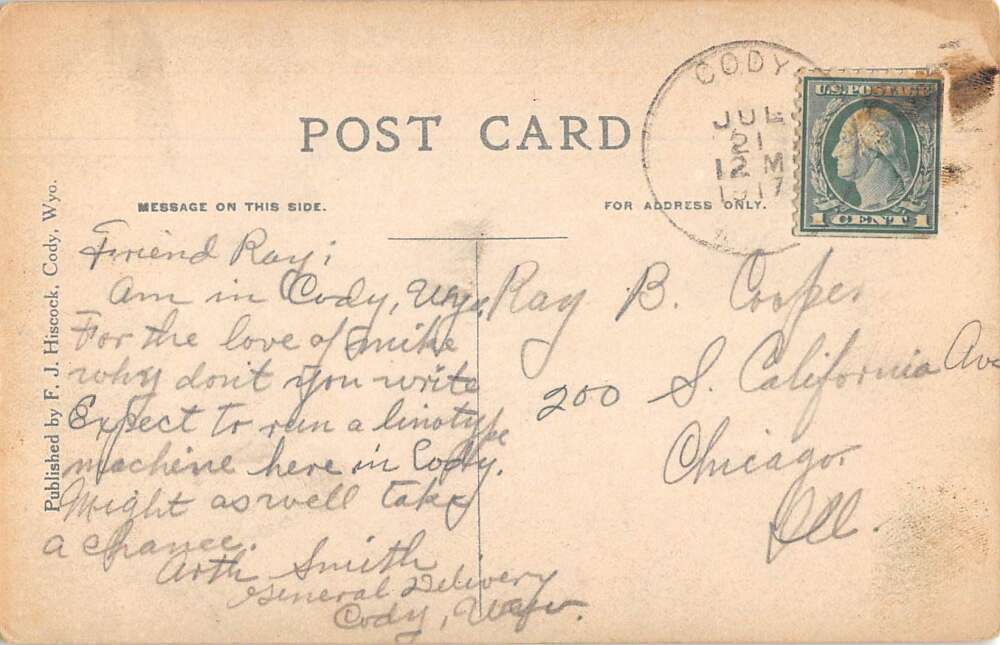 POST CARD
CODY
JUL
21
12 M
1917
U.S. POSTAGE
1 CENT 1
MESSAGE ON THIS SIDE.
FOR ADDRESS ONLY.
Published by F. J. Hiscock, Cody, Wyo.
Friend Ray;
Am in Cody, Wyo.
For the love of mike
why don't you write
Expect to run a linotype
machine here in Cody.
Might as well take
a chance.
Arth Smith
General Delivery
Cody, Wyo.
Ray B. Cooper
200 S. California Ave
Chicago,
Ill.